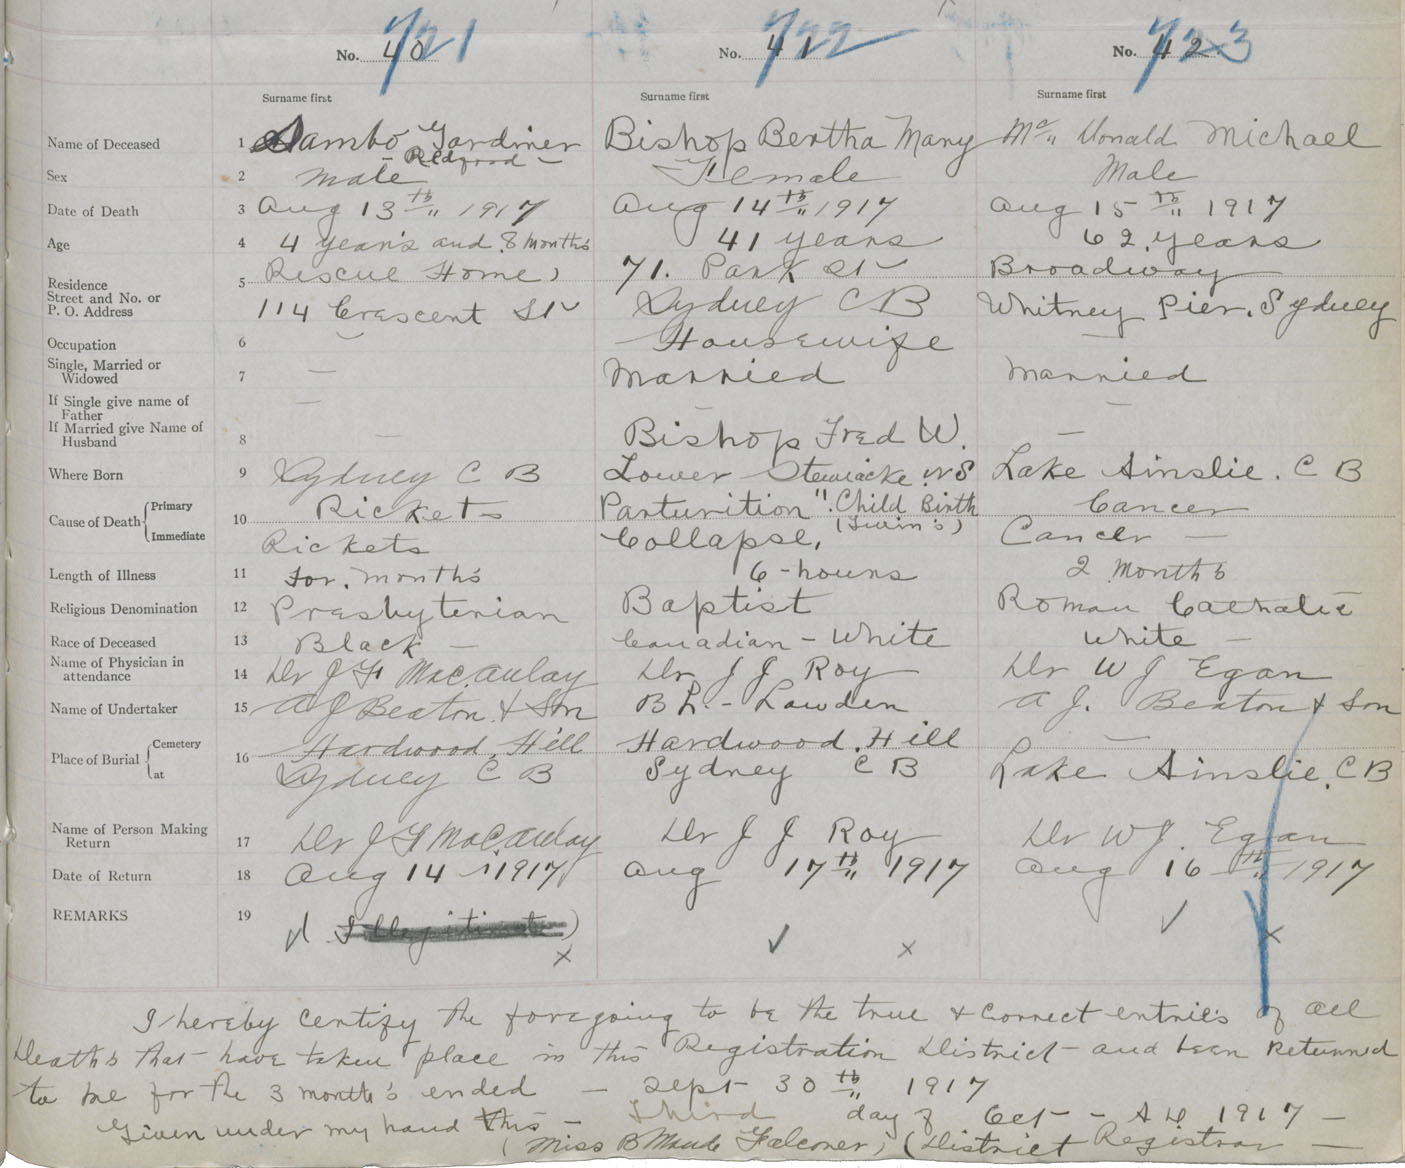 No. 40 721 No. 41 722 No. 42 723
Surname first Surname first Surname first
Name of Deceased 1 Sambo Gardiner Bishop Bertha Mary Mc" Donald Michael
- Redgood -
Sex 2 Male Female Male
Date of Death 3 Aug 13th" 1917 Aug 14th" 1917 Aug 15th" 1917
Age 4 4 year's and 8 months 41 years 62 years
Residence
Street and No. or
P. O. Address
5 Rescue Home, 71. Park St Broadway
114 Crescent St Sydney C B Whitney Pier. Sydney
Occupation 6 - Housewife -
Single, Married or
Widowed
7 - Married Married
If Single give name of
Father
- - -
If Married give Name of
Husband
8 - Bishop Fred W. -
Where Born 9 Sydney C B Lower Stewiacke N S Lake Ainslie. C B
Cause of Death { Primary 10 Rickets Parturition ". Child Birth Cancer
(Twin's)
Immediate Rickets Collapse, Cancer -
Length of Illness 11 for. months 6-hours 2 Months
Religious Denomination 12 Presbyterian Baptist Roman Catholic
Race of Deceased 13 Black - Canadian - White White -
Name of Physician in
attendance
14 Dr J F MacAulay Dr J J Roy Dr W J Egan
Name of Undertaker 15 A J Beaton & Son B L. - Lowden A J. Beaton & Son
Place of Burial { Cemetery 16 Hardwood Hill Hardwood. Hill -
at Sydney C B Sydney C B Lake Ainslie. C B
Name of Person Making
Return
17 Dr J F MacAulay Dr J J Roy Dr W J. Egan
Date of Return 18 Aug 14 1917 Aug 17th" 1917 Aug 16th" 1917
REMARKS 19 √ Illegitimate) x ✓ x ✓ x
I hereby certify the foregoing to be the true & correct entries of all
Deaths that have taken place in this Registration District - and been Returned
to me for the 3 month's ended - Sept 30th" 1917
Given under my hand this - Third day of Oct - A D 1917 -
(Miss B Maude Falconer) (District Registrar -